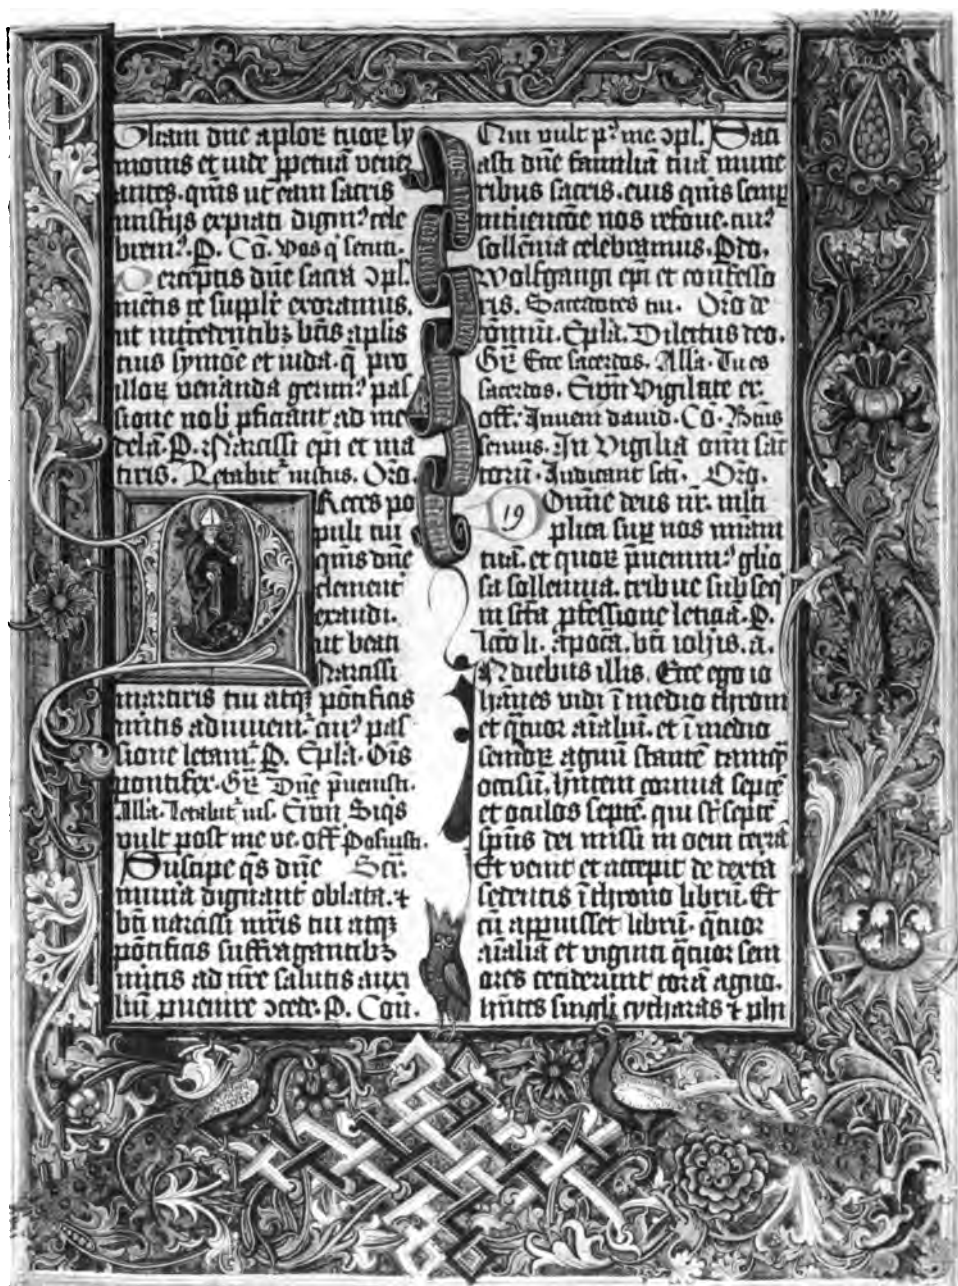 Gliam dne aploꝝ tuoꝝ sy
monis et iude ppetuā venēr
antes. qm̄s ut eam sacris
mistijs expiati digniꝰ cele
brem̄ꝰ. P. Cō. Vos q̄ secuti.
Perceptis dne sacrā ↄpl.
mētis te supplr̄ exoramus.
ut intercedentibꝫ btīs aplis
tuis symōe et iuda. q̄ pro
illoꝝ ven̄anda gerim̄ꝰ pas
sione nob̄ pficiant ad me
delā. P. Narcissi ep̄i et ma
tiris. Letabit̄ iustus. Oro.
Preces po
puli tui
qm̄s dne
clement̄
exaudi.
ut beati
Narcissi
martiris tui atqꝫ pōtificis
mītis adiuuem̄. cuiꝰ pas
sione letam̄. P. Ep̄la. Ois
pontifex. Gr̄. Dne p̄uenisti.
Alla. Letabit̄ ius. Ewn̄ Siq̄s
vult post me ve. off Posuisti.
Suscipe q̄s dne Scē.
munia dignant oblata. ⁊
bti narcissi mr̄is tui atqꝫ
pōtificis suffragantibꝫ
mītis ad nr̄e salutis auxi
liū puenire ↄcede. P. Com̄.
Qui vult pꝰ me ↄpl. Saci
asti dne familiā tuā mune
ribus sacris. eius qm̄s semp
intuencōe nos refoue. cuiꝰ
sollēnia celebramus. Pro.
Wolfgangi ep̄i et confesso
ris. Sacerdotes tui. Oro de
cōmuni. Ep̄la. Dilectus deo.
Gr̄ Ecce sacerdos. Alla. Tu es
sacerdos. Ewn̄ Vigilate ex.
off. Inueni dauid. Co. Beūs
seruus. In Vigilia om̄i sāc
torū. Iudicant scti. Oro.
19 Domine deus nr̄. mlti
plica sup nos m̄iam
tuā. et quoꝝ p̄uenim̄ꝰ glio
sa sollennia. tribue subseq̄
in scta p̄fessione leticiā. P.
lctō li. apoca. bti ioh̄is. a.
In diebus illis. Ecce ego io
hānes vidi ī medio throni
et q̄tuor aīaliū. et ī medio
senioꝝ agnū stantē tamq̄
occisū. h̄ntem cornua septē
et oculos septē. qui st̄ septē
sp̄us dei missi in oem terrā
Et venit et accepit de dextā
sedentis ī throno librū. Et
cū apuisset librū. q̄tuor
aīalia et viginti q̄tuor seni
ores ceciderunt corā agno.
h̄ntes singli cytharas ⁊ phi